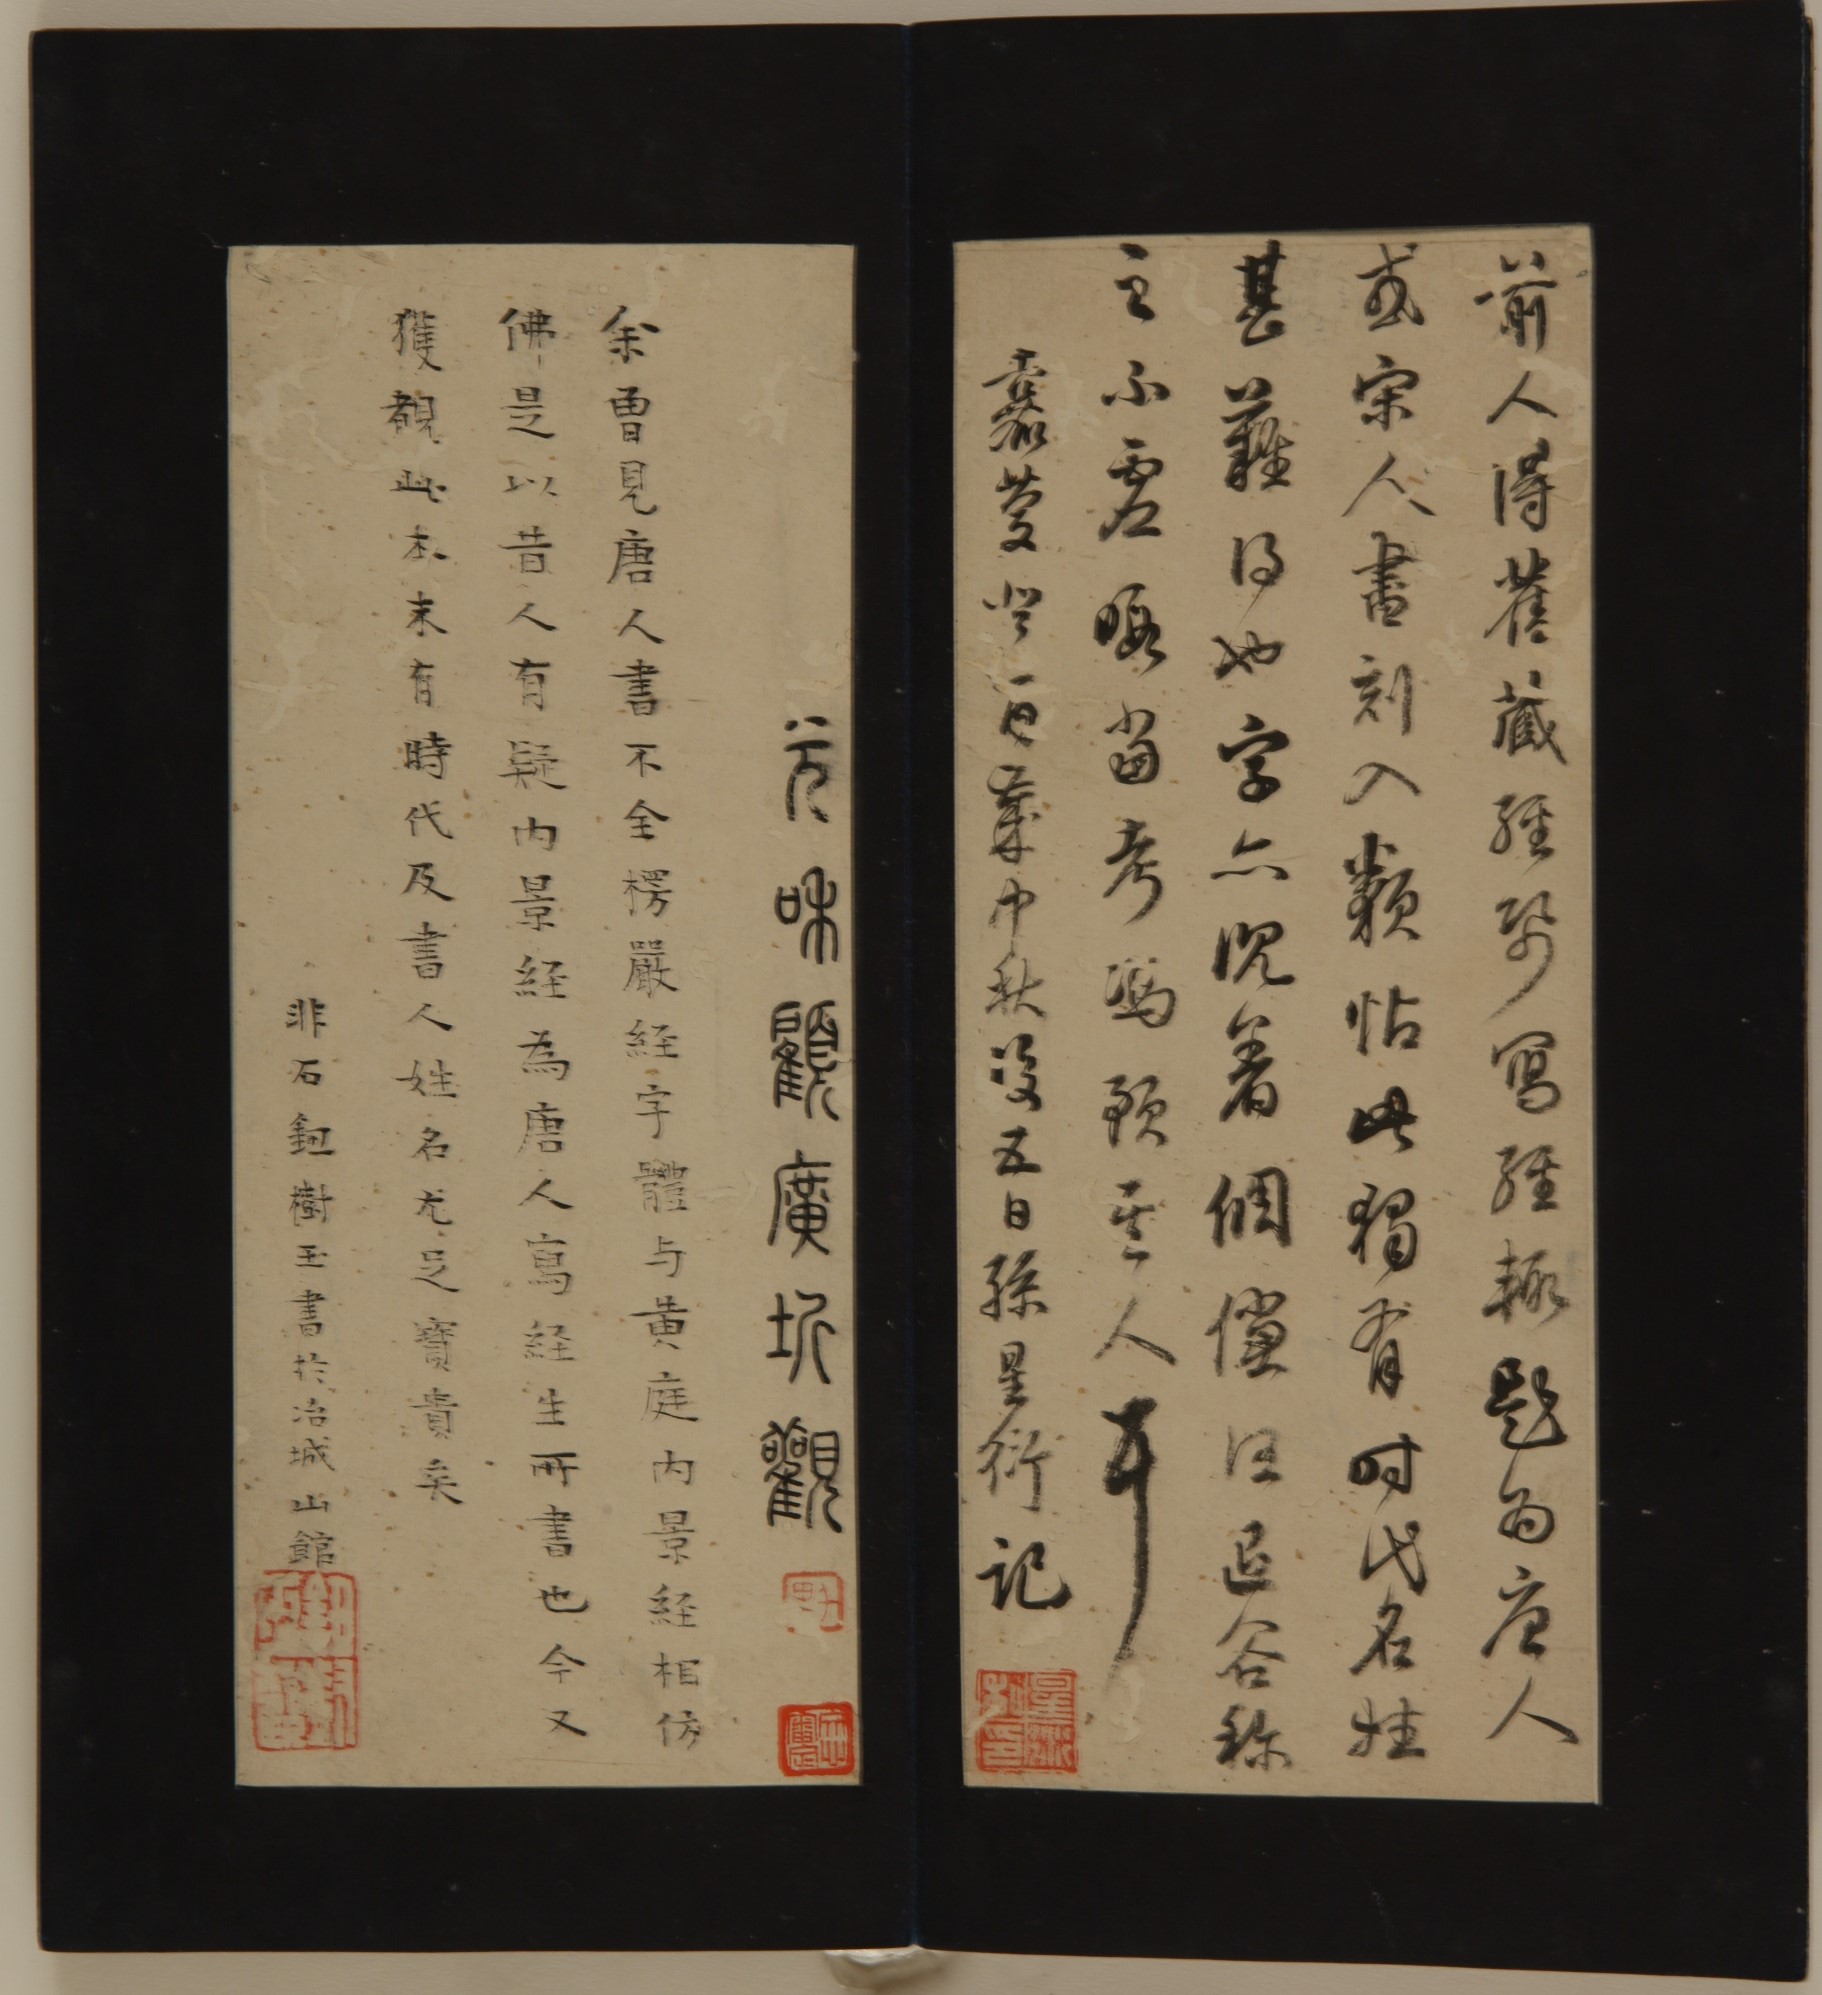 前人得舊藏經殘寫經輒題為唐人
或宋人書刻入類帖此獨有時代名姓
甚難得也字亦倪著倜儻江退谷称
之不虛暇當考馮預其人耳
嘉慶𣥠百藥中秋後五日孫星衍記
元和顧廣圻觀
余曾見唐人書不全楞嚴経字體与黄庭内景経相仿
佛是以昔人有疑内景経為唐人寫経生所書也今又
獲覩此本末有時代及書人姓名尤足寶貴矣
非石鈕樹玉書於冶城山館